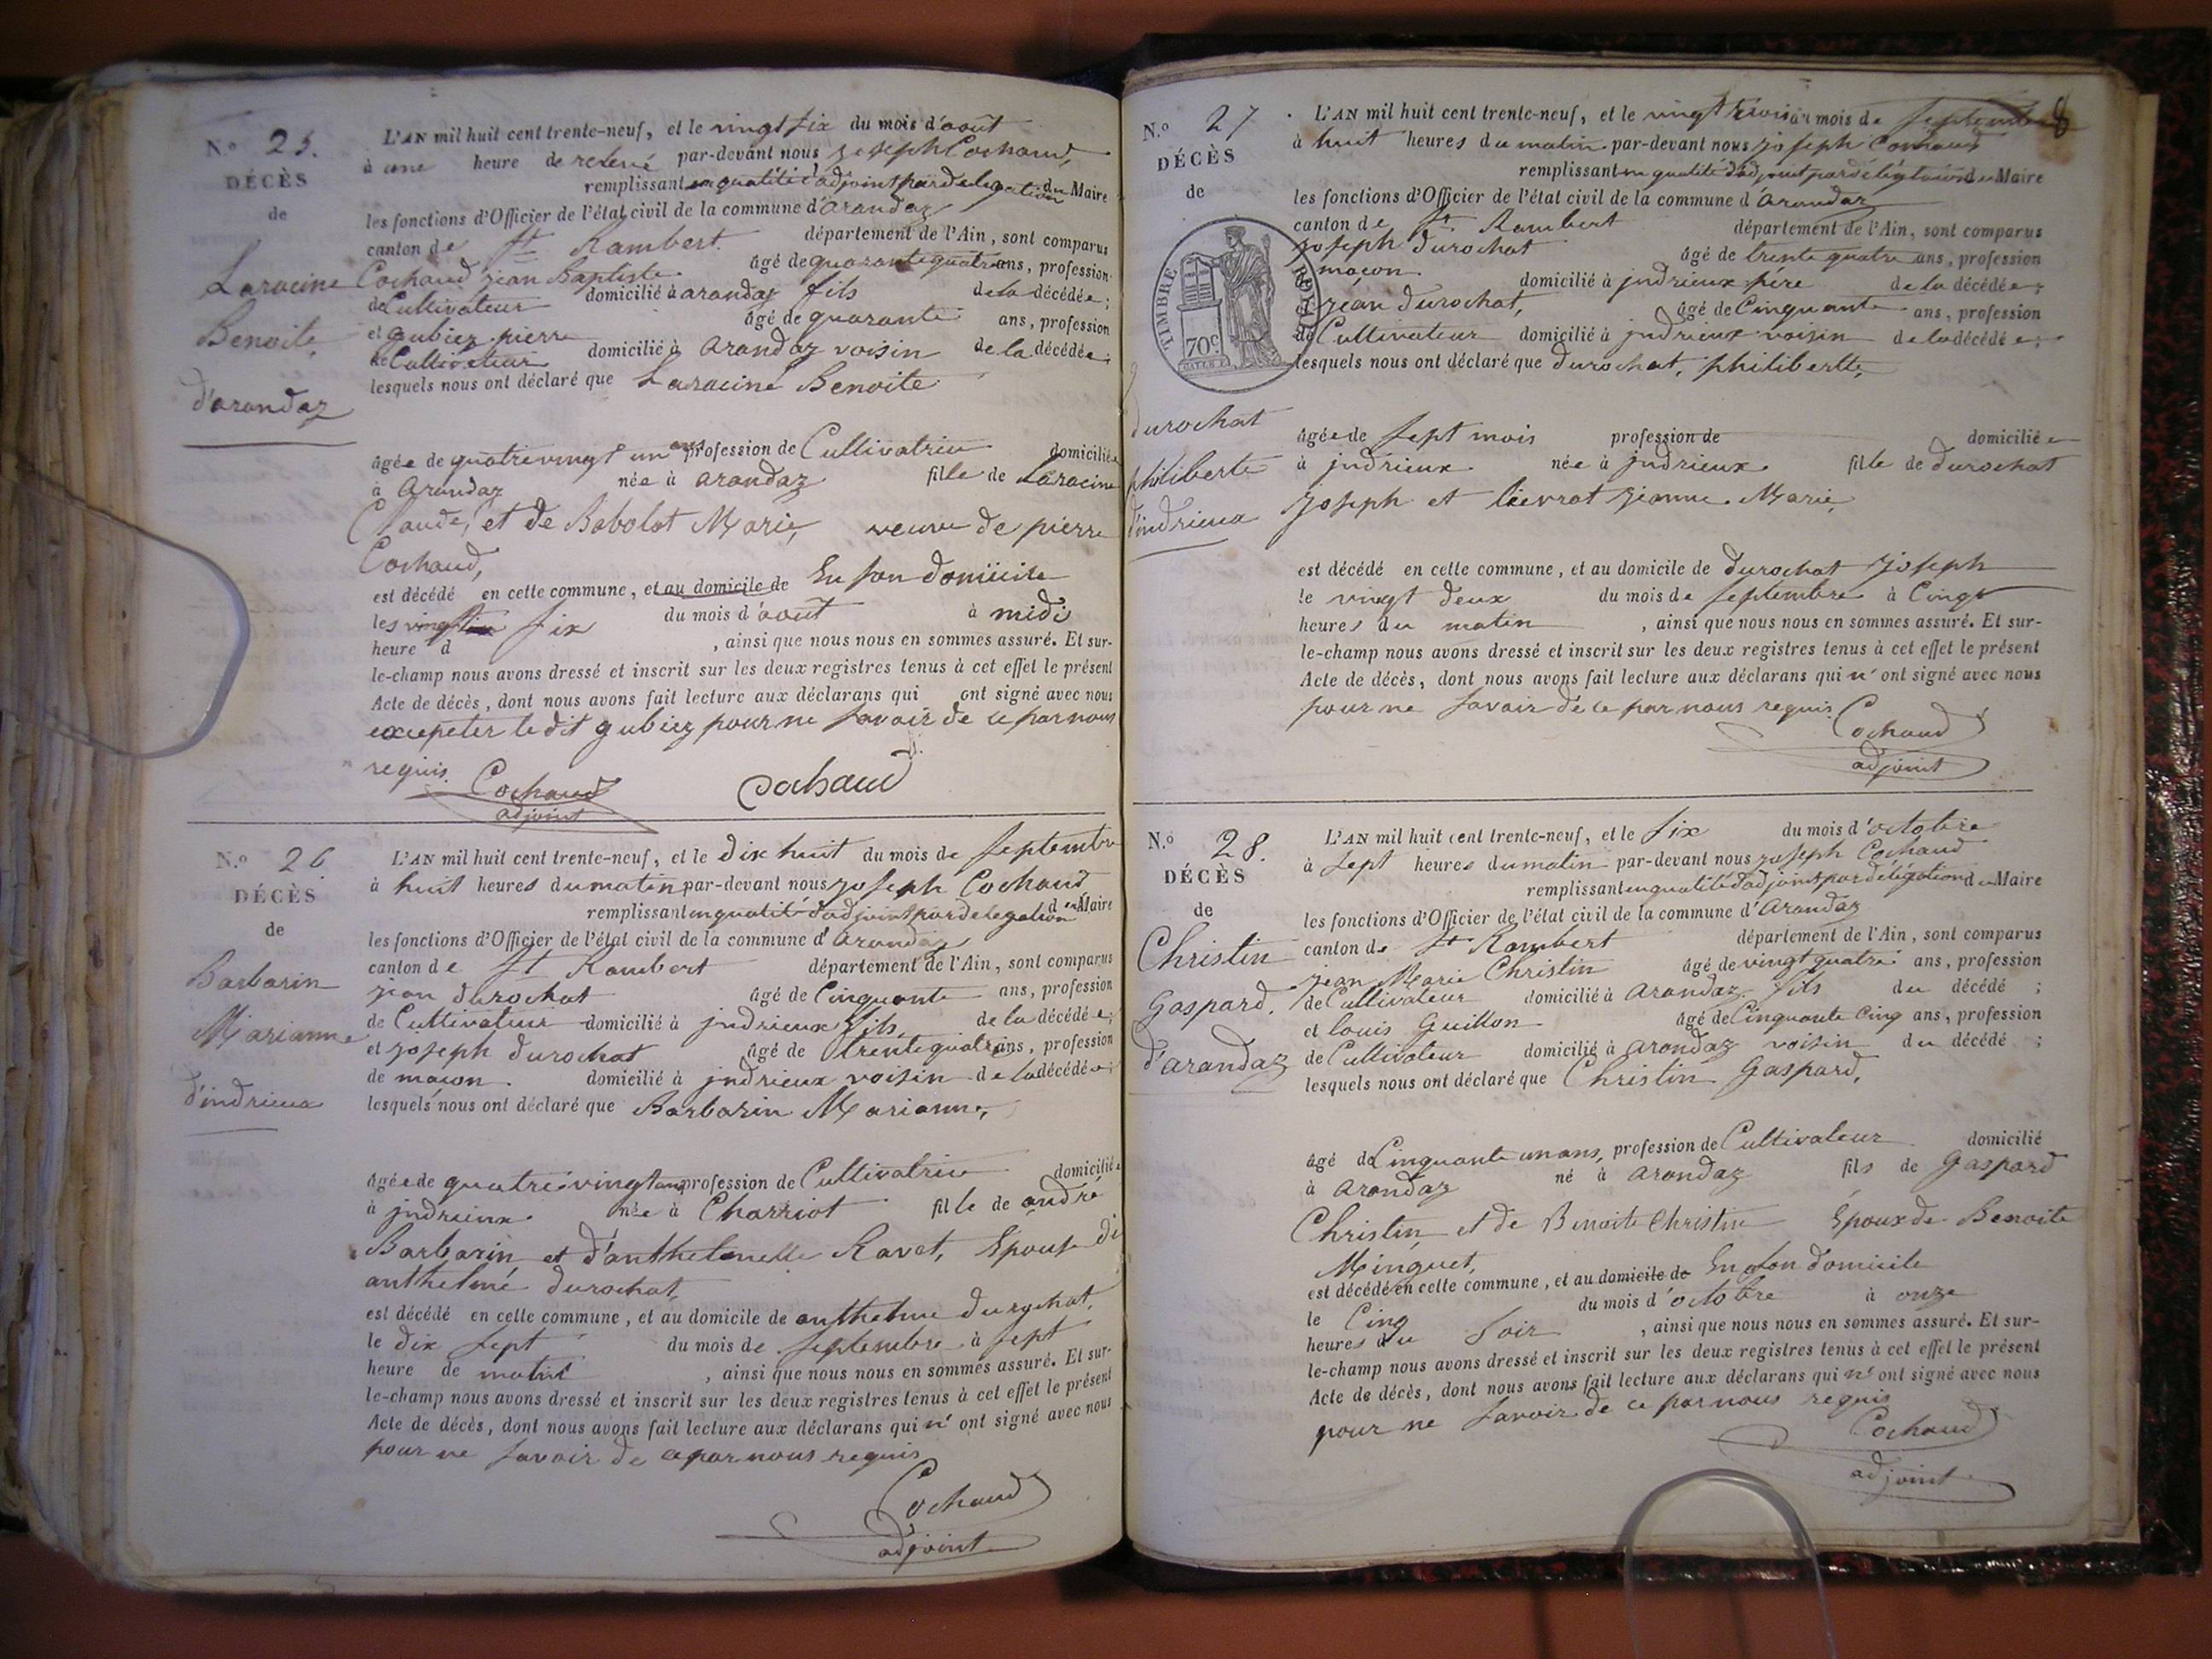 N.o 25.
DÉCÈS
de
Laracine
Benoite
d'arandaz
L'AN mil huit cent trente-neuf, et le vingt six du mois d'août
à une heure de relevé par-devant nous joseph Cochaud,
remplissant en qualité d'adjoint par delegation du Maire
les fonctions d'Officier de l'état civil de la commune d'arandaz
canton de St Rambert. département de l'Ain, sont comparus
Cochaud jean Baptiste âgé de quarante quatre ans, profession
de Cultivateur domicilié à arandaz fils de la décédée;
et gubiez pierre âgé de quarante ans, profession
de Cultivateur domicilié à arandaz voisin de la décédée;
lesquels nous ont déclaré que Laracine Benoite
âgée de quatre vingt un ans profession de Cultivatrice domiciliée
à arandaz née à arandaz fille de Laracine
Claude, et de Babolat Marie, veuve de pierre
Cochaud,
est décédé en cette commune, et au domicile de En son domicile
les vingt six du mois d'août à midi
heure d , ainsi que nous nous en sommes assuré. Et sur-
le-champ nous avons dressé et inscrit sur les deux registres tenus à cet effet le présent
Acte de décès, dont nous avons fait lecture aux déclarans qui ont signé avec nous
excepeter le dit gubiez pour ne savoir de ce par nous
requis.
Cochaud
adjoint
Cochaud
N.o 26.
DÉCÈS
de
Barbarin
Marianne
d'indrieux
L'AN mil huit cent trente-neuf, et le dix huit du mois de septembre
à huit heures du matin par-devant nous joseph Cochaud
remplissant en qualité d'adjoint par delegation du Maire
les fonctions d'Officier de l'état civil de la commune d'arandaz
canton de St Rambert département de l'Ain, sont comparus
jean durochat âgé de Cinquante ans, profession
de Cultivateur domicilié à jndrieux fils, de la décédée;
et joseph durochat âgé de trente quatre ans, profession
de maçon. domicilié à jndrieux voisin de la décédée;
lesquels nous ont déclaré que Barbarin Marianne,
âgée de quatre vingt ans profession de Cultivatrice domiciliée
à jndrieux née à Charriot fille de andré
Barbarin et d'anthelmelle Ravat, Epouse de
anthelme durochat,
est décédé en cette commune, et au domicile de anthelme durochat,
le dix sept du mois de septembre à sept
heure de matin , ainsi que nous nous en sommes assuré. Et sur-
le-champ nous avons dressé et inscrit sur les deux registres tenus à cet effet le présent
Acte de décès, dont nous avons fait lecture aux déclarans qui n'ont signé avec nous
pour ne savoir de ce par nous requis
Cochaud
adjoint
8
N.o 27
DÉCÈS
de
TIMBRE ROYAL
70c
durochat
philiberte
d'indrieux
L'AN mil huit cent trente-neuf, et le vingt trois du mois de septembre
à huit heures du matin par-devant nous joseph Cochaud
remplissant en qualité d'adjoint par délégation du Maire
les fonctions d'Officier de l'état civil de la commune d'arandaz
canton de St Rambert département de l'Ain, sont comparus
joseph durochat âgé de trente quatre ans, profession
maçon domicilié à jndrieux père de la décédée;
jean durochat, âgé de Cinquante ans, profession
de Cultivateur domicilié à jndrieux voisin de la décédée;
lesquels nous ont déclaré que durochat, philibertte,
âgée de sept mois profession de domiciliée
à jndrieux née à jndrieux fille de durochat
joseph et lievrat jeanne Marie,
est décédé en cette commune, et au domicile de durochat joseph
le vingt deux du mois de septembre à Cinq
heures du matin , ainsi que nous nous en sommes assuré. Et sur-
le-champ nous avons dressé et inscrit sur les deux registres tenus à cet effet le présent
Acte de décès, dont nous avons fait lecture aux déclarans qui n'ont signé avec nous
pour ne savoir de ce par nous requis.
Cochaud
adjoint
N.o 28.
DÉCÈS
de
Christin
Gaspard.
d'arandaz
L'AN mil huit cent trente-neuf, et le six du mois d'octobre
à sept heures du matin par-devant nous joseph Cochaud
remplissant en qualité d'adjoint par délégation du Maire
les fonctions d'Officier de l'état civil de la commune d'arandaz
canton de St Rambert département de l'Ain, sont comparus
jean Marie Christin âgé de vingt quatre ans, profession
de Cultivateur domicilié à arandaz fils du décédé ;
et louis Guillon âgé de Cinquante Cinq ans, profession
de Cultivateur domicilié à arandaz voisin du décédé ;
lesquels nous ont déclaré que Christin Gaspard,
âgé de Cinquante un ans, profession de Cultivateur domicilié
à arandaz né à arandaz fils de Gaspard
Christin et de Benoite Christin Epoux de Benoite
Minguet,
est décédé en cette commune, et au domicile de En son domicile
le Cinq du mois d'octobre à onze
heures du soir , ainsi que nous nous en sommes assuré. Et sur-
le-champ nous avons dressé et inscrit sur les deux registres tenus à cet effet le présent
Acte de décès, dont nous avons fait lecture aux déclarans qui n'ont signé avec nous
pour ne savoir de ce par nous requis
Cochaud
adjoint